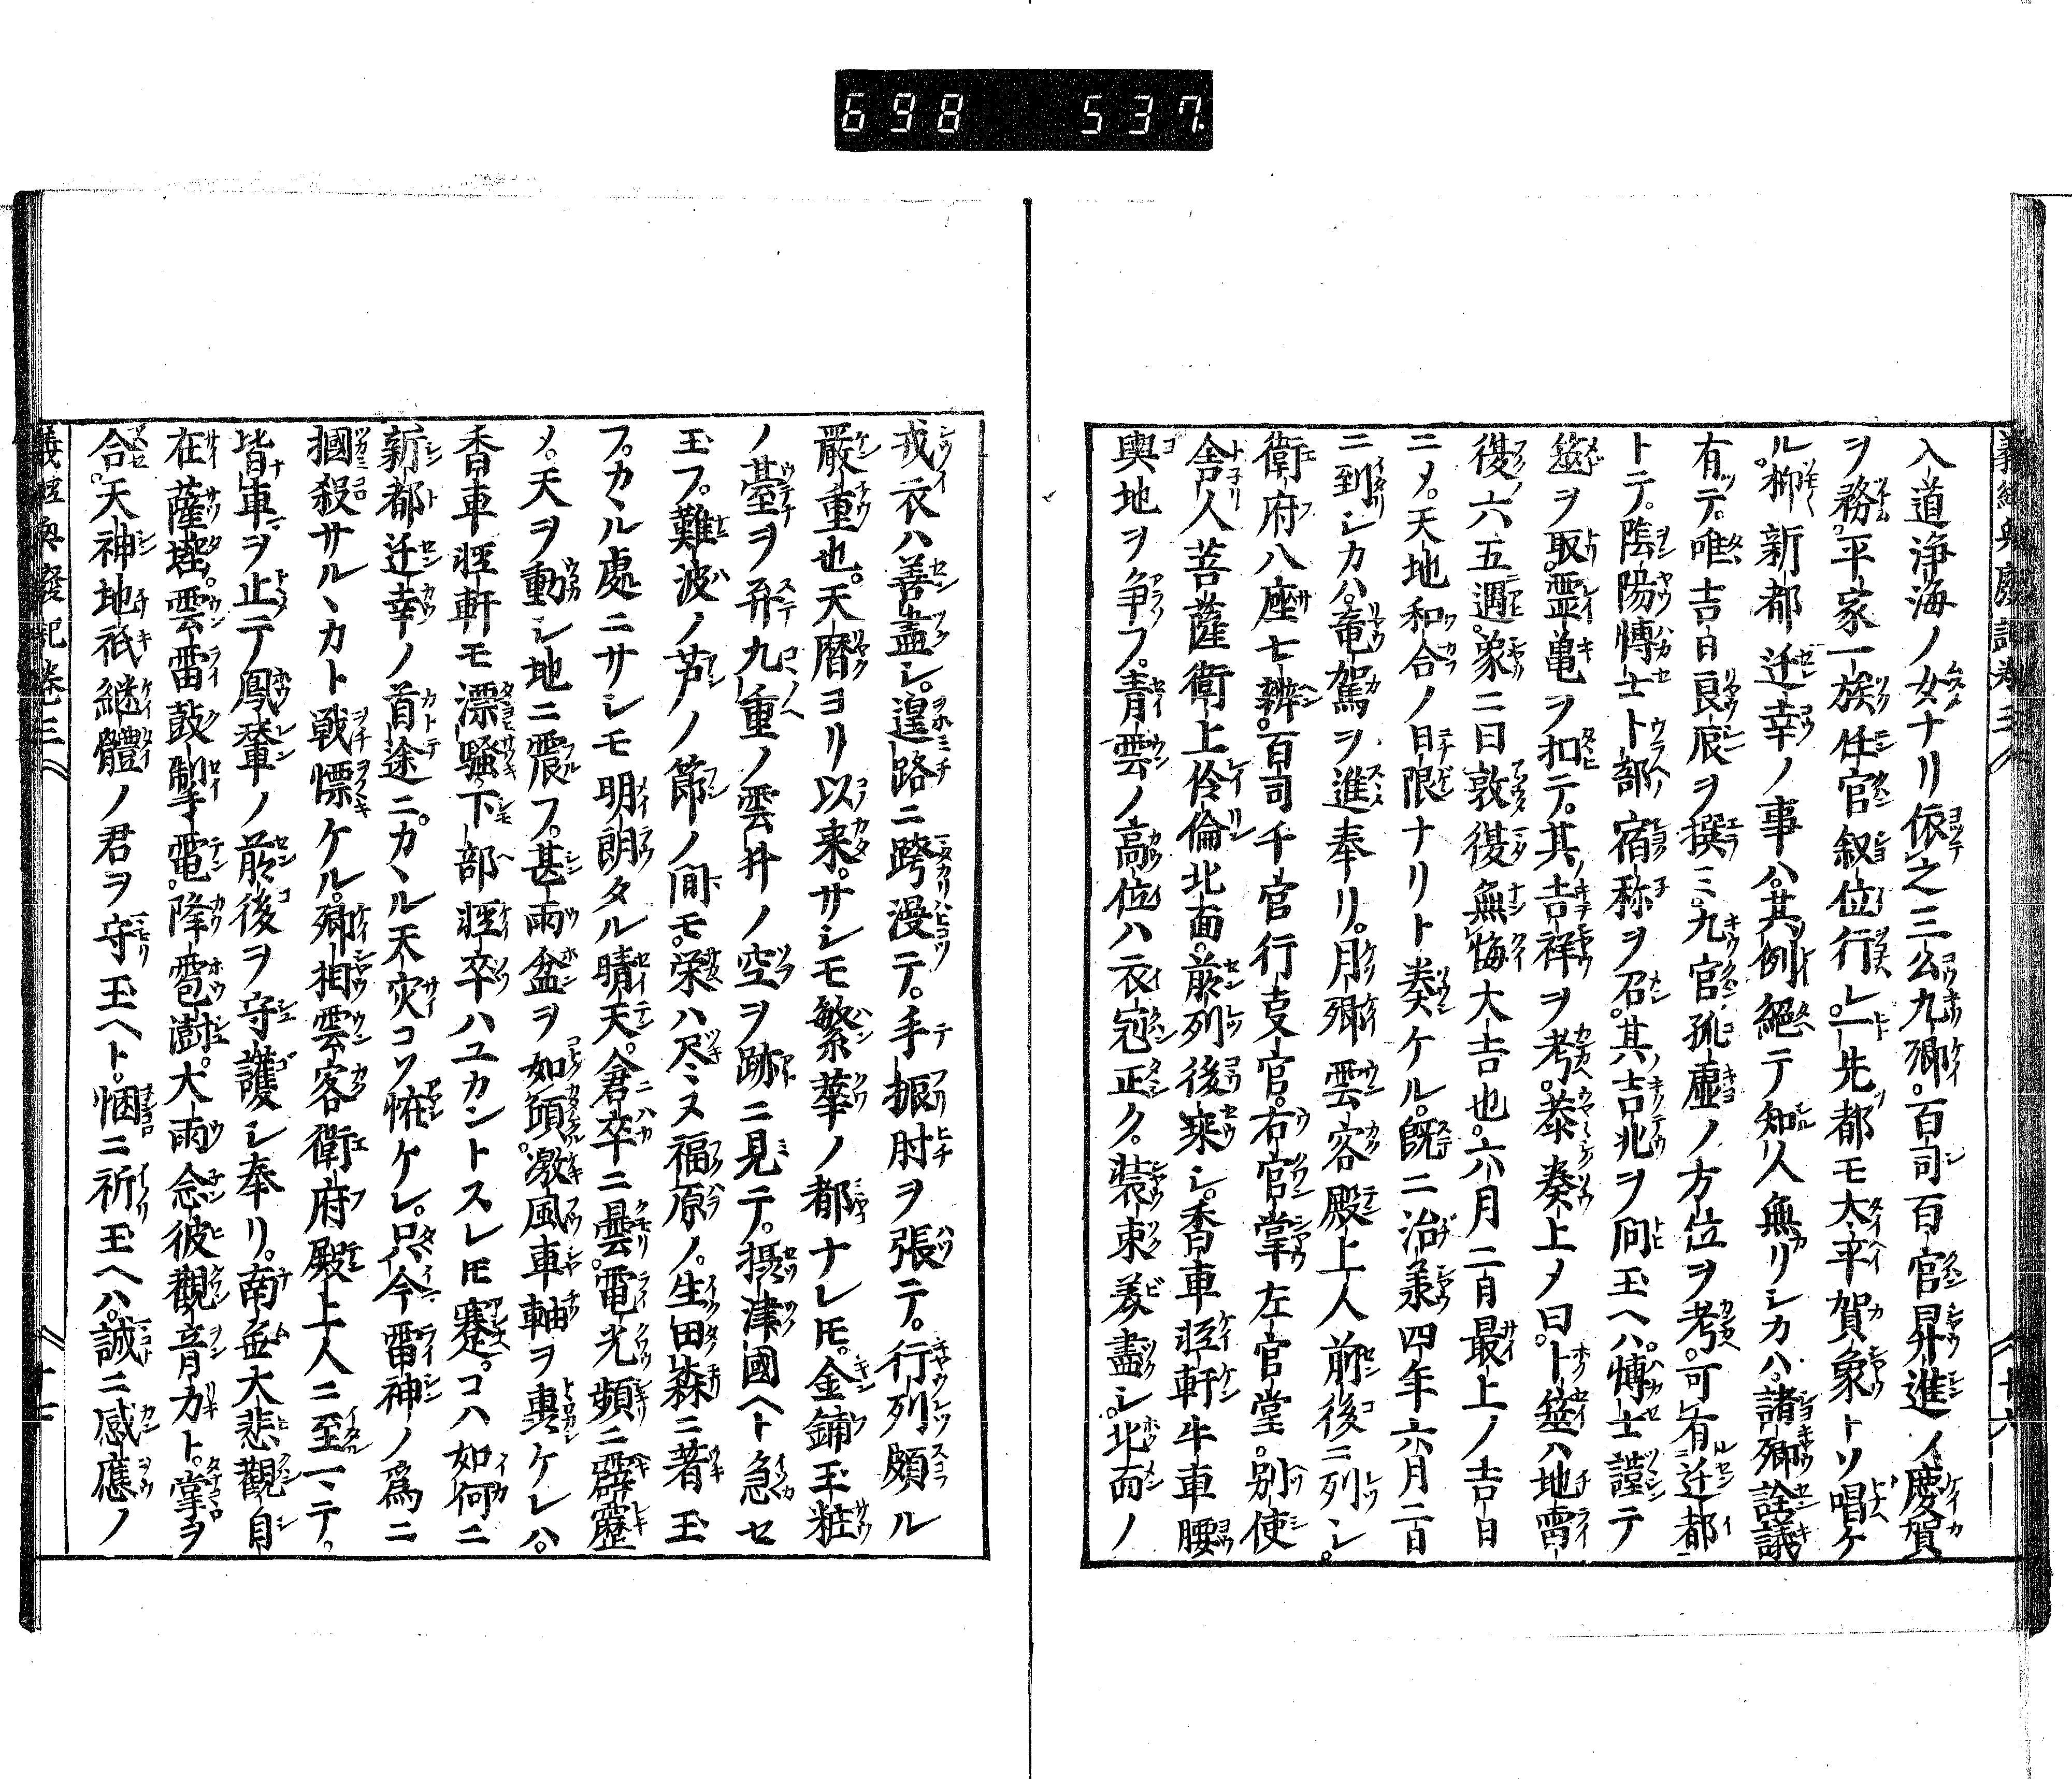 698 537
義經興廢記卷三 十六
入道浄海ノ女ナリ依之三公九卿。百司百官昇進ノ慶賀
ヲ務。平家一族任官叙位行レ。一先都モ大平賀象トソ唱ケ
ル。抑新都迁幸ノ事ハ。其例絕テ知人無リシカハ。諸卿詮議
有テ。唯吉日良辰ヲ撰ミ。九官孤虛ノ方位ヲ考。可有迁都
トテ。陰陽博士卜部宿祢ヲ召。其吉兆ヲ問玉ヘハ。博士謹テ
筮ヲ取。霊亀ヲ扣テ。其吉祥ヲ考。恭奏上ノ曰。卜筮ハ地雷
復六五遇。象ニ曰敦復無悔大吉也。六月二日最上ノ吉日
ニメ。天地和合ノ日限ナリト奏ケル。既ニ治承四年六月二日
ニ到シカハ。竜駕ヲ進奉リ。月卿雲客殿上人前後ニ列シ。
衛府八座七辨。百司千官行叓官。右官掌左官掌。別使
舎人菩薩衛上伶倫北面。前列後乗シ。香車軽軒牛車腰
輿地ヲ争フ。青雲ノ高位ハ衣冠正ク。装束美盡シ。北面ノ
戎衣ハ善盡シ。遑路ニ跨漫テ。手振肘ヲ張テ。行列頗ル
嚴重也。天暦ヨリ以来。サシモ繁華ノ都ナレ𪜈。金鋪玉粧
ノ臺ヲ弃九重ノ雲井ノ空ヲ跡ニ見テ。摂津國ヘト急セ
玉フ。難波ノ芦ノ節ノ間モ。栄ハ尽ミヌ福原ノ。生田森ニ著玉
フ。カヽル處ニサシモ明朗タル晴天。倉卒ニ曇。電光頻ニ霹靂
メ。天ヲ動シ地ニ震フ。甚雨盆ヲ如傾。激風車軸ヲ轟ケレハ。
香車軽軒モ漂騒。下部軽卒ハユカントスレ𪜈蹇。コハ如何ニ
新都迁幸ノ首途ニ。カヽル天灾コソ怪ケレ。只今雷神ノ爲ニ
摑殺サルヽカト戦慓ケル。卿相雲客衛府殿上人ニ至ㇾテ。
皆車ヲ止テ鳳輦ノ前後ヲ守護シ奉リ。南無大悲觀自
在薩埵。雲雷鼓掣電。降雹澍大雨念彼觀音力ト。掌ヲ
合。天神地祇継體ノ君ヲ守玉ヘト。悃ニ祈玉ヘハ。誠ニ感應ノ
義經興廢記卷三 十七